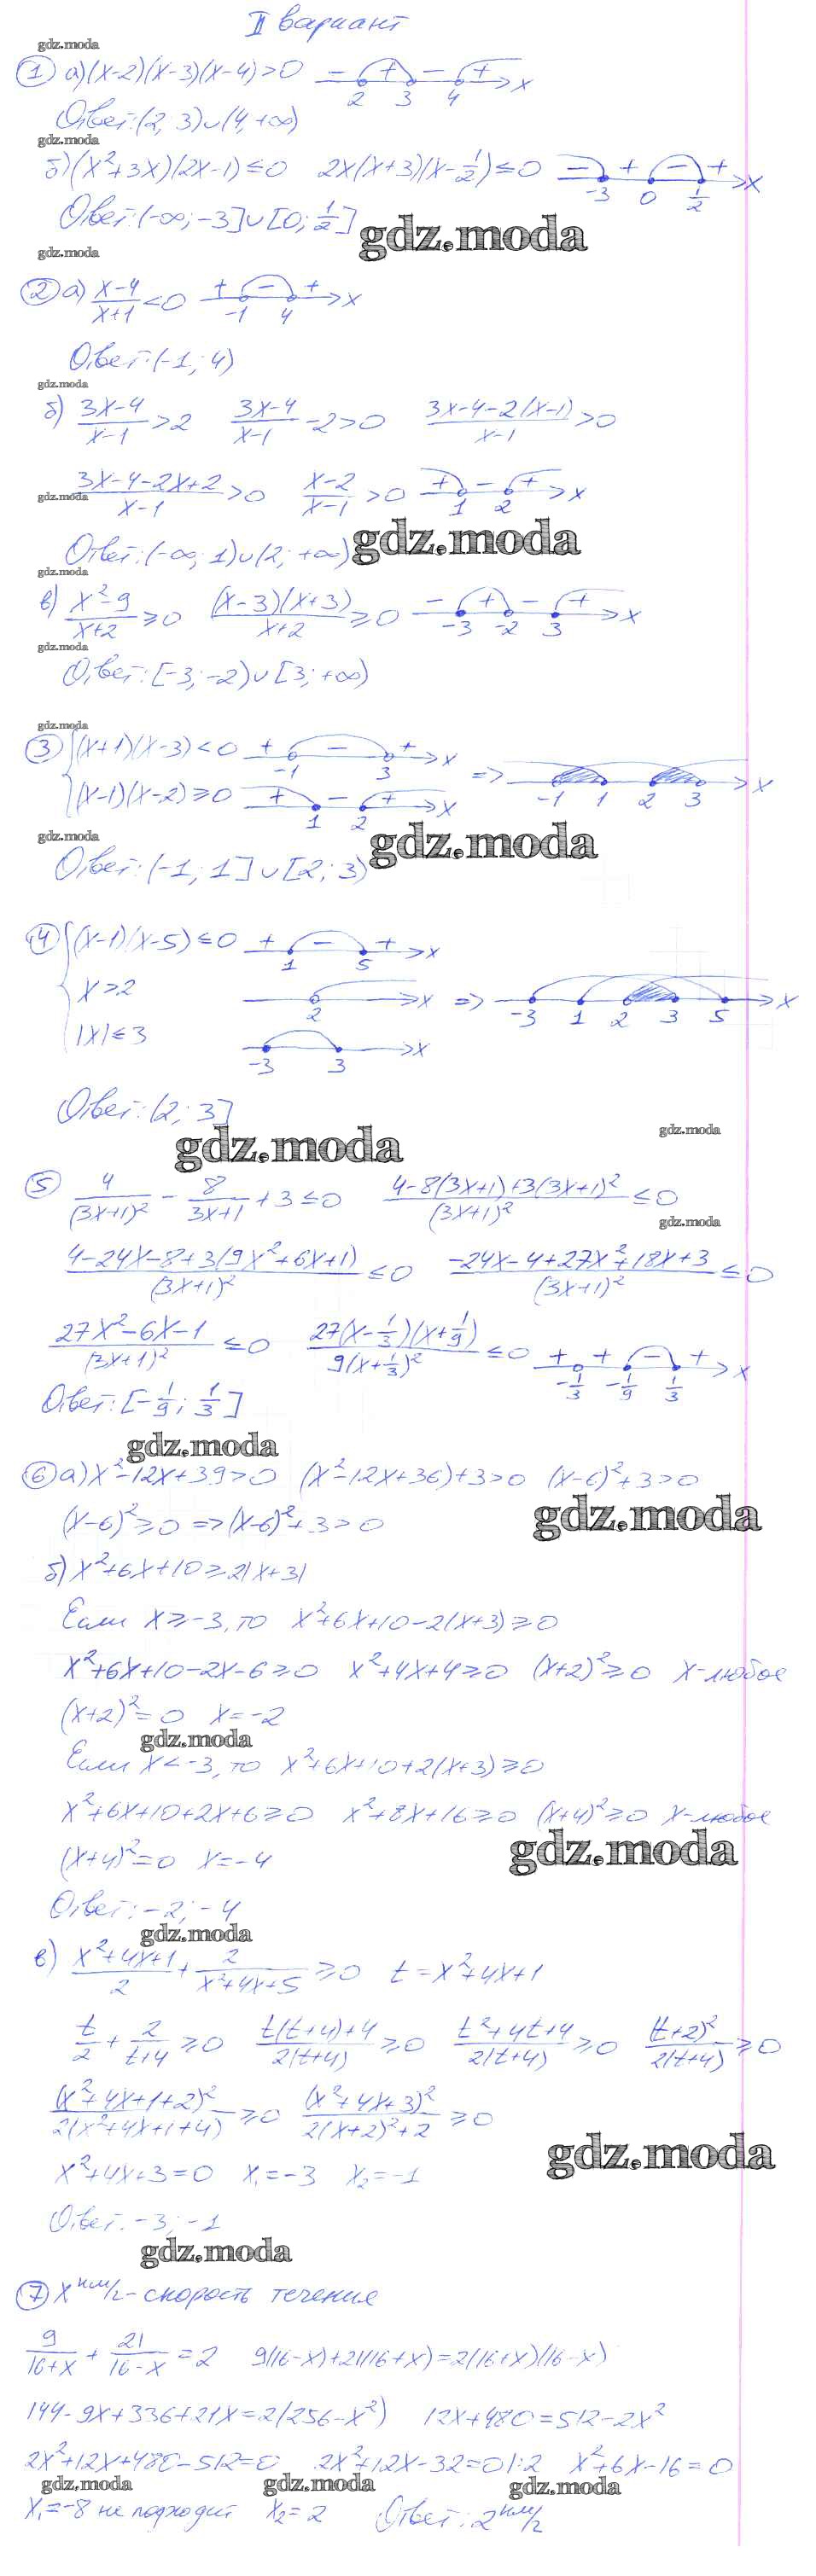 II вариант
gdz.moda
1 а) (x-2)(x-3)(x-4)>0 - + - + x
2 3 4
Ответ: (2; 3)∪(4; +∞)
gdz.moda
б) (x²+3x)(2x-1)≤0 2x(x+3)(x-1/2)≤0 - + - + x
-3 0 1/2
Ответ: (-∞; -3]∪[0; 1/2]
gdz.moda
gdz.moda
2 а) (x-4)/(x+1)<0 + - + x
-1 4
Ответ: (-1; 4)
gdz.moda
б) (3x-4)/(x-1)>2 (3x-4)/(x-1)-2>0 (3x-4-2(x-1))/(x-1)>0
gdz.moda
(3x-4-2x+2)/(x-1)>0 (x-2)/(x-1)>0 + - + x
1 2
Ответ: (-∞; 1)∪(2; +∞)
gdz.moda
gdz.moda
в) (x²-9)/(x+2)≥0 ((x-3)(x+3))/(x+2)≥0 - + - + x
-3 -2 3
gdz.moda
Ответ: [-3; -2)∪[3; +∞)
gdz.moda
3 {(x+1)(x-3)<0 + - + x
-1 3
(x-1)(x-2)≥0 + - + x => x
1 2 -1 1 2 3
gdz.moda
gdz.moda
Ответ: (-1; 1]∪[2; 3)
4 {(x-1)(x-5)≤0 + - + x
1 5
x>2 x => x
2 -3 1 2 3 5
|x|≤3 x
-3 3
Ответ: (2; 3]
gdz.moda
gdz.moda
5 4/(3x+1)² - 8/(3x+1) + 3≤0 (4-8(3x+1)+3(3x+1)²)/(3x+1)²≤0
gdz.moda
(4-24x-8+3(9x²+6x+1))/(3x+1)²≤0 (-24x-4+27x²+18x+3)/(3x+1)²≤0
(27x²-6x-1)/(3x+1)²≤0 27(x-1/3)(x+1/9)/9(x+1/3)²≤0 + + - + x
-1/3 -1/9 1/3
Ответ: [-1/9; 1/3]
gdz.moda
6 а) x²-12x+39>0 (x²-12x+36)+3>0 (x-6)²+3>0
gdz.moda
(x-6)²≥0 => (x-6)²+3>0
б) x²+6x+10≥2|x+3|
Если x≥-3, то x²+6x+10-2(x+3)≥0
x²+6x+10-2x-6≥0 x²+4x+4≥0 (x+2)²≥0 x-любое
(x+2)²=0 x=-2
gdz.moda
Если x<-3, то x²+6x+10+2(x+3)≥0
x²+6x+10+2x+6≥0 x²+8x+16≥0 (x+4)²≥0 x-любое
gdz.moda
(x+4)²=0 x=-4
Ответ: -2; -4
gdz.moda
в) (x²+4x+1)/2 + 2/(x²+4x+5)≥0 t=x²+4x+1
t/2 + 2/(t+4)≥0 (t(t+4)+4)/2(t+4)≥0 (t²+4t+4)/2(t+4)≥0 (t+2)²/2(t+4)≥0
(x²+4x+1+2)²/2(x²+4x+1+4)≥0 (x²+4x+3)²/2(x+2)²+2≥0
gdz.moda
x²+4x+3=0 x₁=-3 x₂=-1
Ответ: -3; -1
gdz.moda
7 x км/ч - скорость течения
9/(16+x) + 21/(16-x) = 2 9(16-x)+21(16+x)=2(16+x)(16-x)
144-9x+336+21x=2(256-x²) 12x+480=512-2x²
2x²+12x+480-512=0 2x²+12x-32=0|:2 x²+6x-16=0
gdz.moda gdz.moda gdz.moda
x₁=-8 не подходит x₂=2 Ответ: 2 км/ч